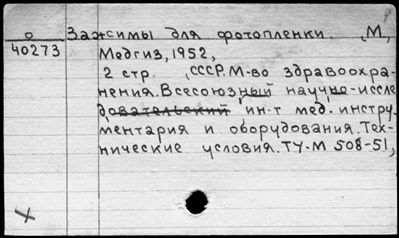 о Зажимы для фотопленки. М,
40273 Медгиз, 1952,
2 стр. СССР. М-во здравоохра-
нения. Всесоюзный научно-иссле
довательский ин-т мед. инстру
ментария и оборудования. Тех-
нические условия. ТУ-М 508-51,